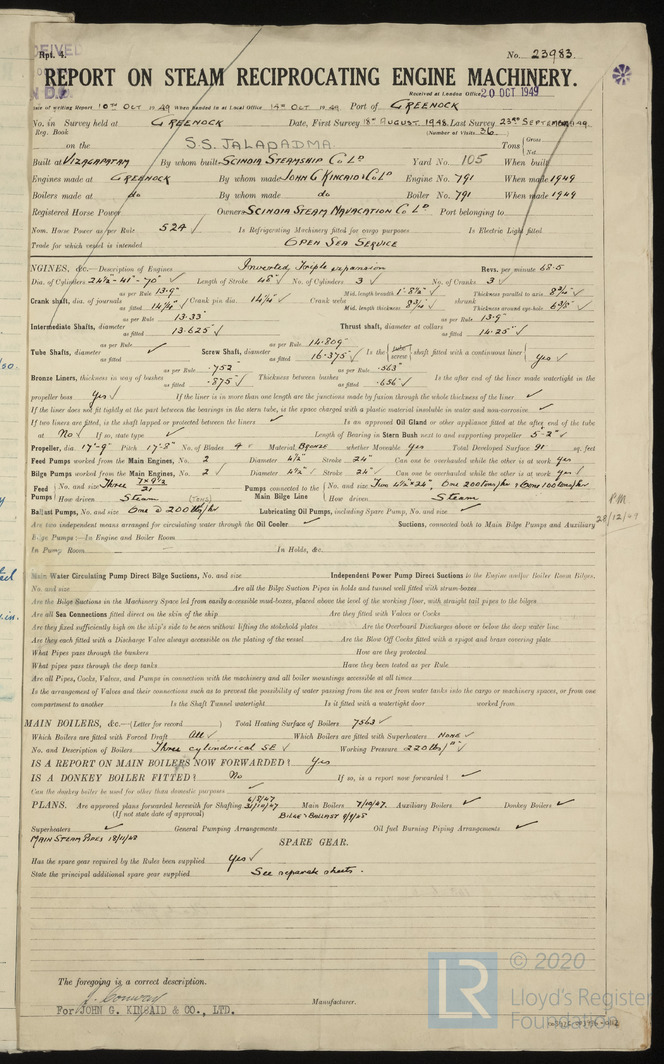 Rpt. 4.
No. 23983.
REPORT ON STEAM RECIPROCATING ENGINE MACHINERY.
Received at London Office 20 OCT 1949
Date of writing Report 10TH OCT 1949 When handed in at Local Office 14TH OCT 1949 Port of GREENOCK
No. in Survey held at GREENOCK Date, First Survey 18TH AUGUST 1948 Last Survey 23RD SEPTEMBER 1949
Reg. Book (Number of Visits 36)
on the S.S. JALAPADMA Tons { Gross Net
Built at VIZAGAPATAM By whom built SCINDIA STEAMSHIP Co LD Yard No. 105 When built
Engines made at GREENOCK By whom made JOHN G KINCAID & Co LD Engine No. 791 When made 1949
Boilers made at do By whom made do Boiler No. 791 When made 1949
Registered Horse Power Owners SCINDIA STEAM NAVIGATION Co LD Port belonging to
Nom. Horse Power as per Rule 524 Is Refrigerating Machinery fitted for cargo purposes Is Electric Light fitted
Trade for which vessel is intended OPEN SEA SERVICE
ENGINES, &c.—Description of Engines Inverted Triple expansion Revs. per minute 68.5
Dia. of Cylinders 24½"-41"-70" Length of Stroke 48" No. of Cylinders 3 No. of Cranks 3
Crank shaft, dia. of journals as per Rule 13.9" as fitted 14¼" Crank pin dia. 14¼" Crank webs Mid. length breadth 1'-8½" Mid. length thickness 8¾" shrunk Thickness parallel to axis 8¾" Thickness around eye-hole 6⅜"
Intermediate Shafts, diameter as per Rule 13.33" as fitted 13.625" Thrust shaft, diameter at collars as per Rule 13.9" as fitted 14.25"
Tube Shafts, diameter as per Rule as fitted Screw Shaft, diameter as per Rule 14.809" as fitted 16.375" Is the { tube screw } shaft fitted with a continuous liner { Yes
Bronze Liners, thickness in way of bushes as per Rule .752 as fitted .875" Thickness between bushes as per Rule .563" as fitted .656" Is the after end of the liner made watertight in the
propeller boss Yes If the liner is in more than one length are the junctions made by fusion through the whole thickness of the liner
If the liner does not fit tightly at the part between the bearings in the stern tube, is the space charged with a plastic material insoluble in water and non-corrosive
If two liners are fitted, is the shaft lapped or protected between the liners Is an approved Oil Gland or other appliance fitted at the after end of the tube
shaft No If so, state type Length of Bearing in Stern Bush next to and supporting propeller 5'-2"
Propeller, dia 17'-9" Pitch 17'-8" No. of Blades 4 Material BRONZE whether Moveable Yes Total Developed Surface 91 sq. feet
Feed Pumps worked from the Main Engines, No. 2 Diameter 4½" Stroke 24" Can one be overhauled while the other is at work Yes
Bilge Pumps worked from the Main Engines, No. 2 Diameter 4½" Stroke 24" Can one be overhauled while the other is at work Yes
Feed Pumps { No. and size Three 7×9½/21 How driven Steam Pumps connected to the Main Bilge Line { No. and size Two 4½"×24", One 200 tons/hr & One 100 tons/hr How driven Steam
Ballast Pumps, No. and size One @ 200 (TONS)/hr Lubricating Oil Pumps, including Spare Pump, No. and size
Are two independent means arranged for circulating water through the Oil Cooler Suctions, connected both to Main Bilge Pumps and Auxiliary
PM
28/12/49
Bilge Pumps:—In Engine and Boiler Room
In Pump Room In Holds, &c.
Main Water Circulating Pump Direct Bilge Suctions, No. and size Independent Power Pump Direct Suctions to the Engine and/or Boiler Room Bilges,
No. and size Are all the Bilge Suction Pipes in holds and tunnel well fitted with strum-boxes
Are the Bilge Suctions in the Machinery Space led from easily accessible mud-boxes, placed above the level of the working floor, with straight tail pipes to the bilges
Are all Sea Connections fitted direct on the skin of the ship Are they fitted with Valves or Cocks
Are they fixed sufficiently high on the ship's side to be seen without lifting the stokehold plates Are the Overboard Discharges above or below the deep water line
Are they each fitted with a Discharge Valve always accessible on the plating of the vessel Are the Blow Off Cocks fitted with a spigot and brass covering plate
What Pipes pass through the bunkers How are they protected
What pipes pass through the deep tanks Have they been tested as per Rule
Are all Pipes, Cocks, Valves, and Pumps in connection with the machinery and all boiler mountings accessible at all times
Is the arrangement of Valves and their connections such as to prevent the possibility of water passing from the sea or from water tanks into the cargo or machinery spaces, or from one
compartment to another Is the Shaft Tunnel watertight Is it fitted with a watertight door worked from
MAIN BOILERS, &c.—(Letter for record ) Total Heating Surface of Boilers 7563
Which Boilers are fitted with Forced Draft All Which Boilers are fitted with Superheaters NONE
No. and Description of Boilers Three cylindrical SE Working Pressure 220 lbs/□"
IS A REPORT ON MAIN BOILERS NOW FORWARDED? Yes
IS A DONKEY BOILER FITTED? No If so, is a report now forwarded?
Can the donkey boiler be used for other than domestic purposes
PLANS. Are approved plans forwarded herewith for Shafting 6/8/47 31/10/47 Main Boilers 7/10/47 Auxiliary Boilers Donkey Boilers
(If not state date of approval) BILGE & BALLAST 8/9/48
Superheaters General Pumping Arrangements Oil fuel Burning Piping Arrangements
MAIN STEAM PIPES 18/11/48
SPARE GEAR.
Has the spare gear required by the Rules been supplied Yes
State the principal additional spare gear supplied See separate sheets.
The foregoing is a correct description.
For JOHN G. KINCAID & CO., LTD. Manufacturer.
LR
© 2020
Lloyd's Register
Foundation